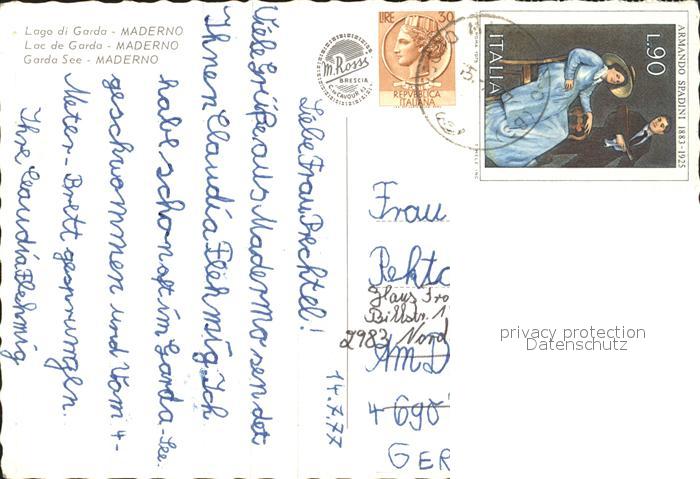 Lago di Garda - MADERNO
Lac de Garda - MADERNO
Garda See - MADERNO
14.7.77
Liebe Frau Bechtel!
Viele Grüße aus Maderno sendet
Ihnen Claudia Flehmig. Ich
habe schon oft im Garda-See
geschwommen und vom 4-
Meter-Brett gesprungen.
Ihre Claudia Flehmig
m. Rossi
BRESCIA
C. CAVOUR
LIRE 30
REPVBBLICA
ITALIANA
L.90
ITALIA
ARMANDO SPADINI 1883-1925
Frau
Rekto
Haus
2983 Nord
Am D
4690
GER
privacy protection
Datenschutz